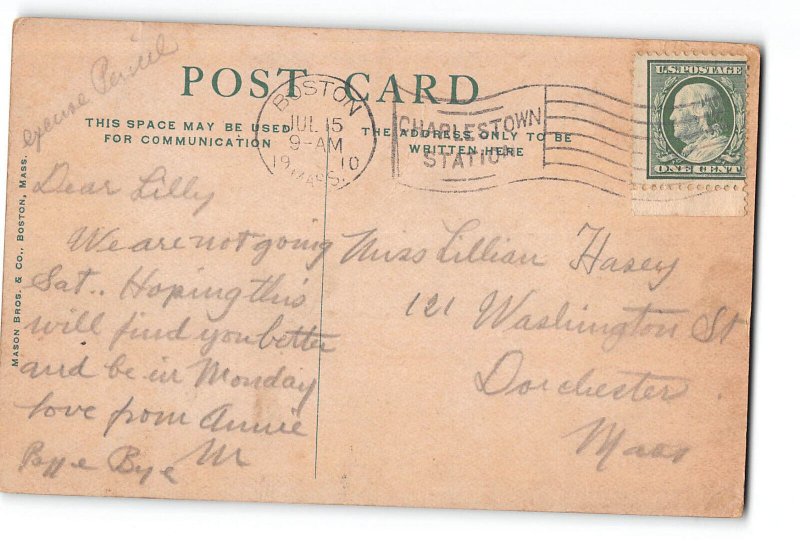 excuse Pencil
POST CARD
THIS SPACE MAY BE USED
FOR COMMUNICATION
THE ADDRESS ONLY TO BE
WRITTEN HERE
BOSTON
JUL 15
9-AM
19 10
MASS.
CHARLESTOWN
STATION
U.S. POSTAGE
ONE CENT
MASON BROS. & CO., BOSTON, MASS.
Dear Lilly
We are not going
Sat.. Hoping this
will find you better
and be in Monday
love from Annie
Bye Bye M
Miss Lillian Hasey
121 Washington St
Dorchester
Mass